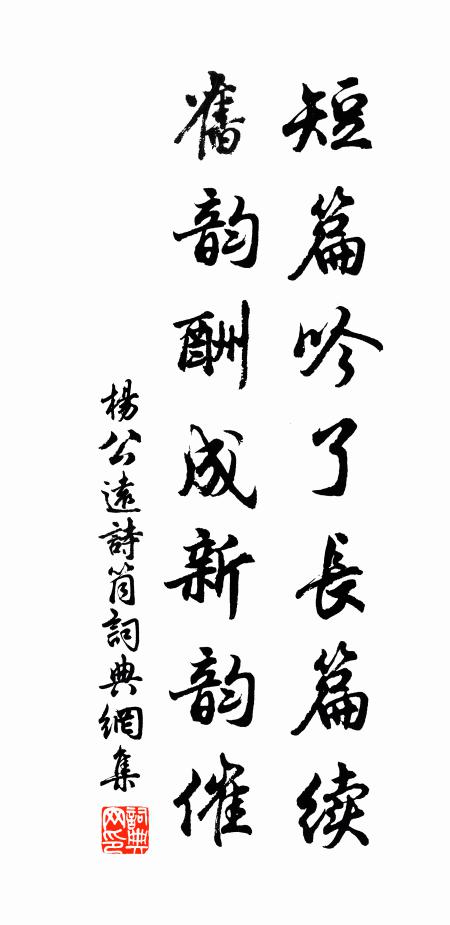 短篇吟了長篇续
舊韵酬成新韵催
楊公遠詩筒詞典網集
詞典网印